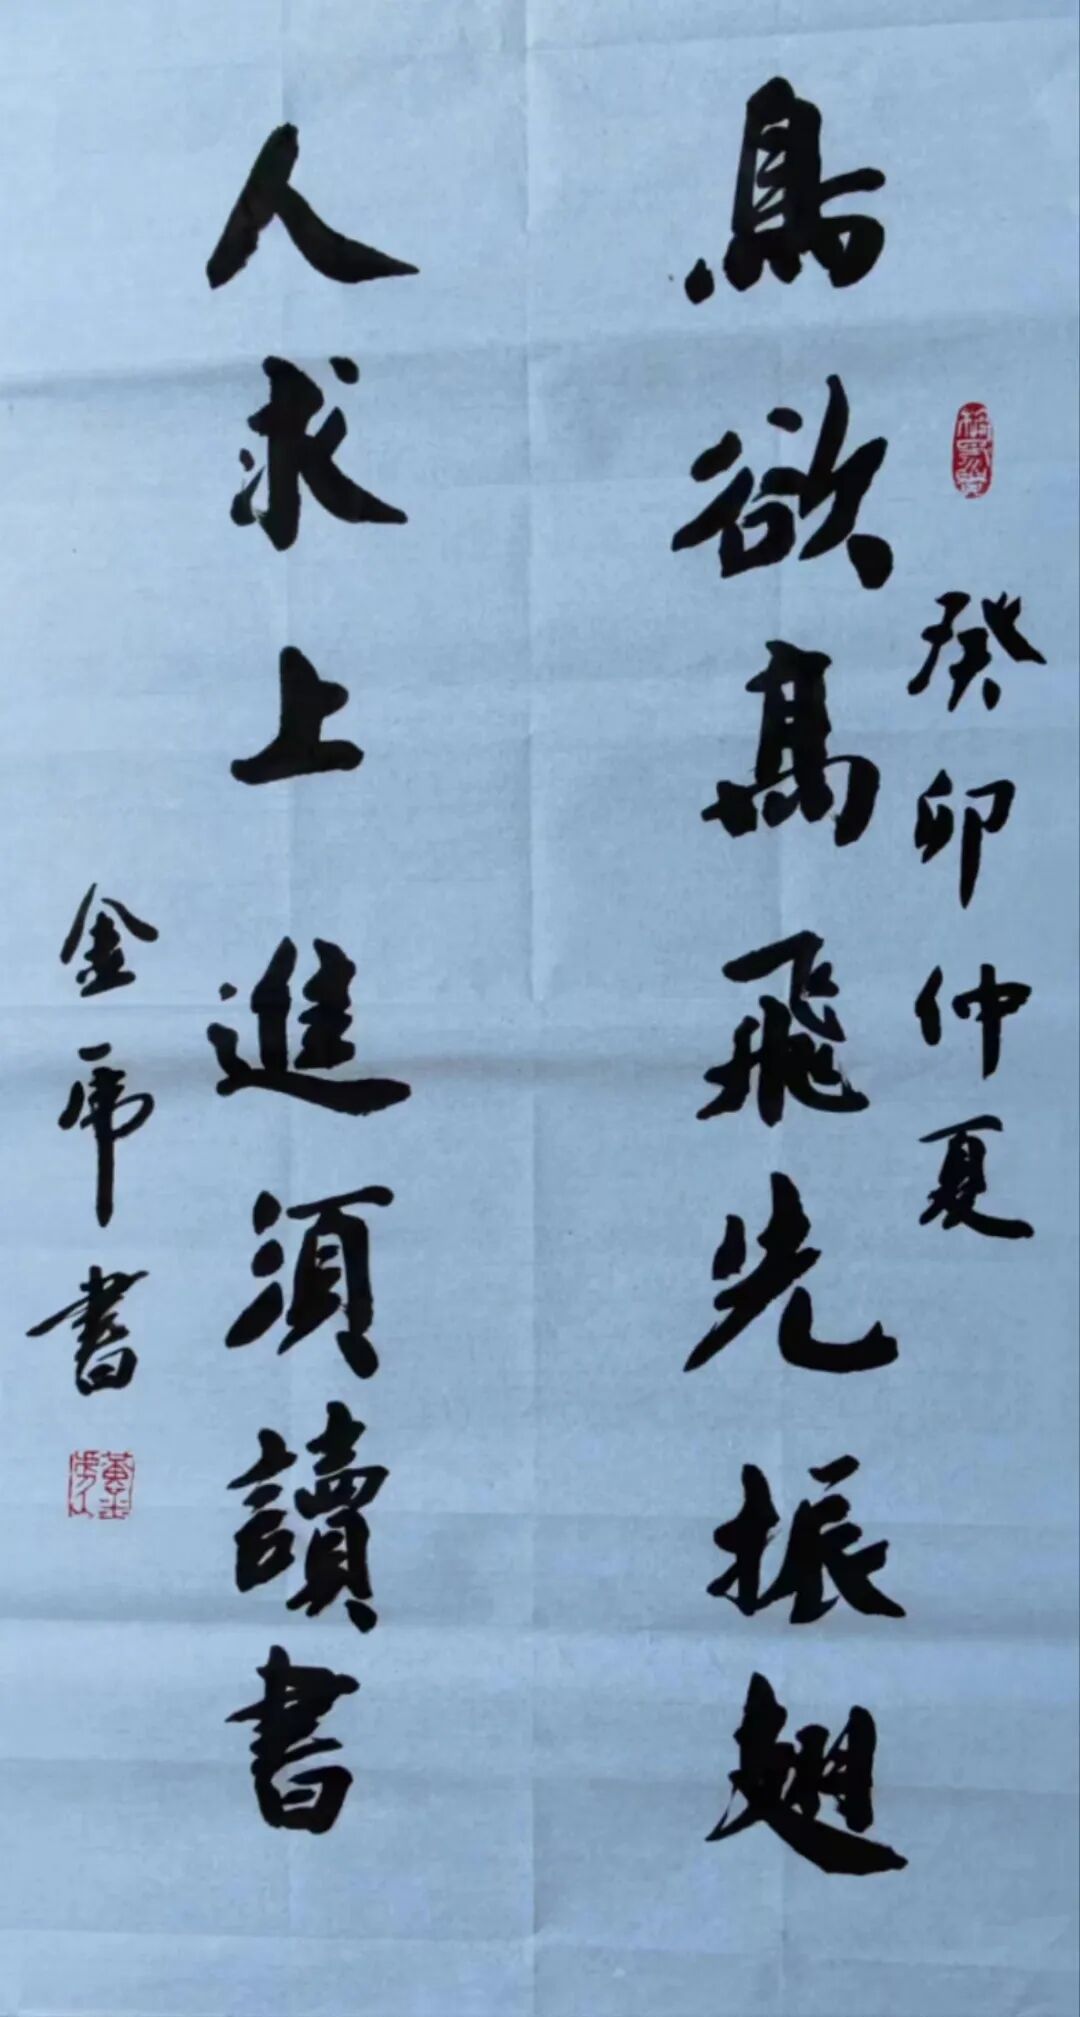 癸卯仲夏
鳥欲高飛先振翅
人求上進須讀書
金虎書